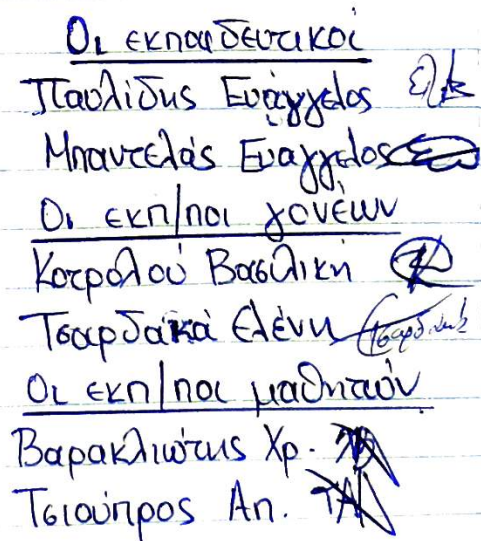 Οι εκπαιδευτικοί
Παυλίδης Ευάγγελος
Μπαντελάς Ευάγγελος
Οι εκπ/ποι γονέων
Κοτρολού Βασιλική
Τσαρδακά Ελένη
Οι εκπ/ποι μαθητών
Βαρακλιώτης Χρ.
Τσιούπρος Απ.